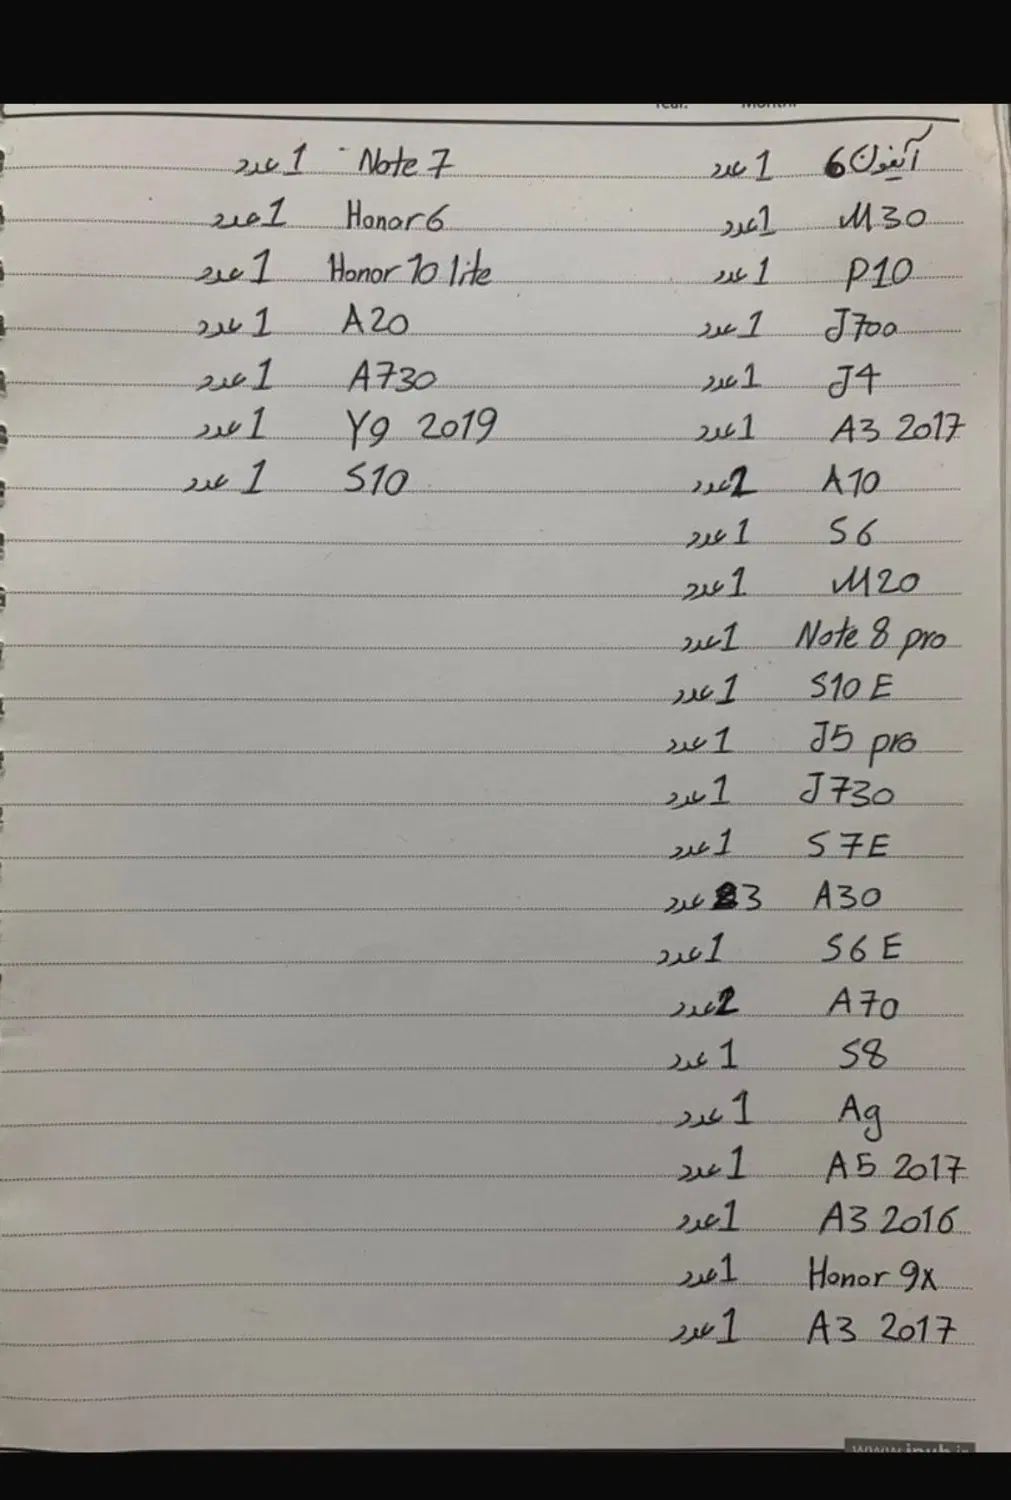 آیفون 6 1 عدد
M30 1 عدد
P10 1 عدد
J700 1 عدد
J4 1 عدد
A3 2017 1 عدد
A10 2 عدد
S6 1 عدد
M20 1 عدد
Note 8 pro 1 عدد
S10 E 1 عدد
J5 pro 1 عدد
J730 1 عدد
S7E 1 عدد
A30 3 عدد
S6 E 1 عدد
A70 2 عدد
S8 1 عدد
A9 1 عدد
A5 2017 1 عدد
A3 2016 1 عدد
Honor 9x 1 عدد
A3 2017 1 عدد
Note 7 1 عدد
Honor 6 1 عدد
Honor 10 lite 1 عدد
A20 1 عدد
A730 1 عدد
Y9 2019 1 عدد
S10 1 عدد